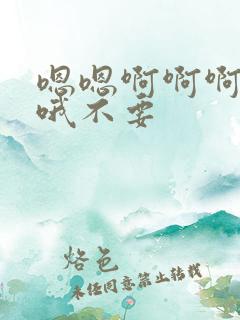 嗯嗯啊啊啊
哦不要
烙色
未经同意禁止转载